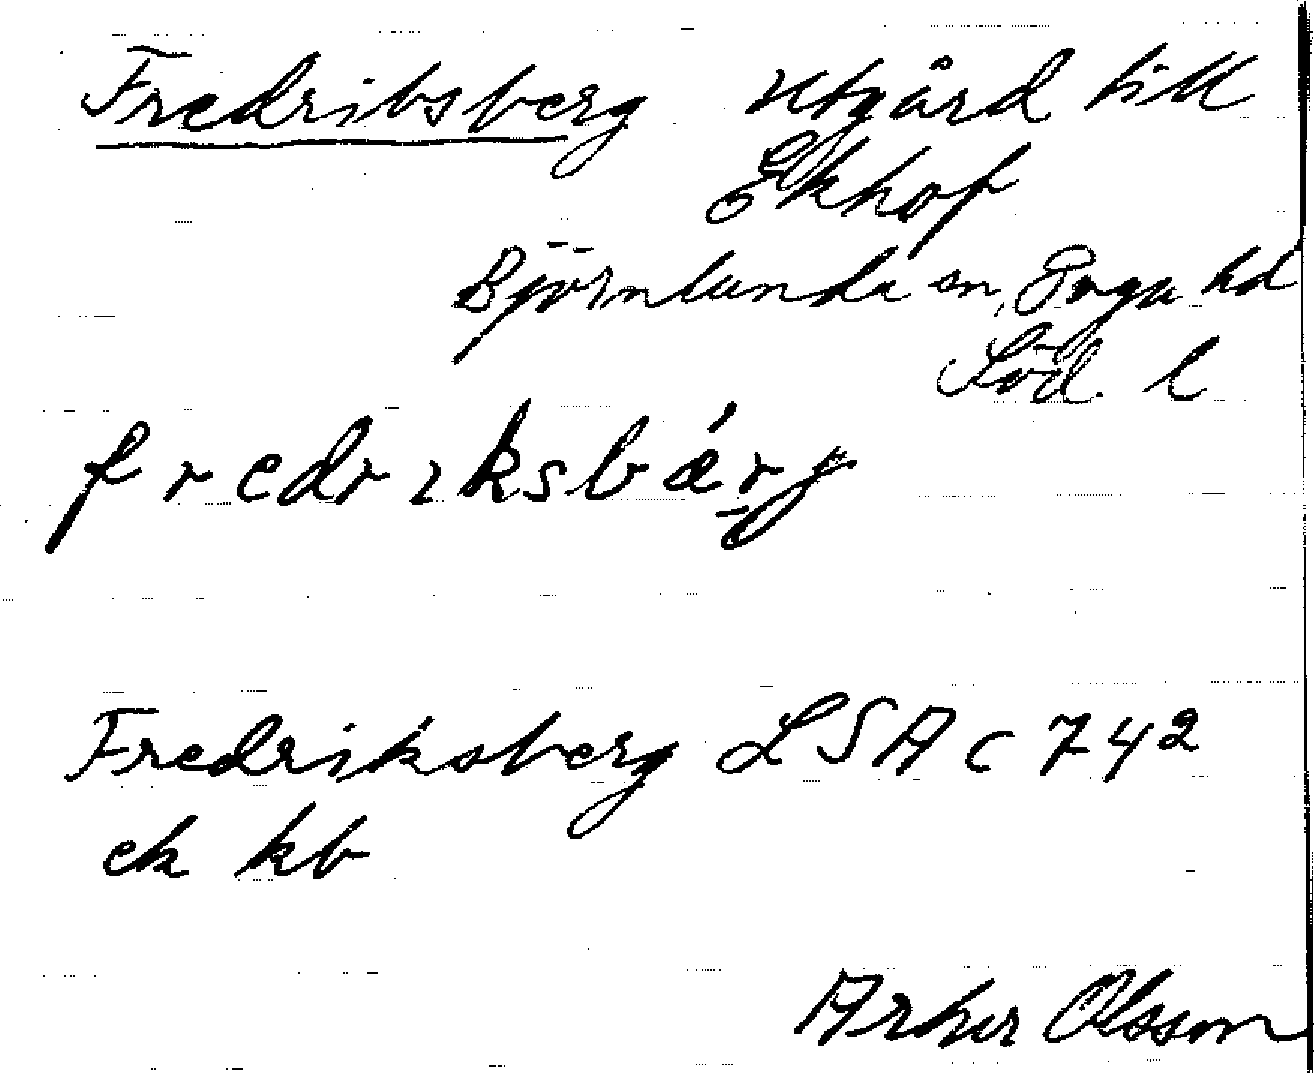 Fredriksberg utgård till
Ekhof
Björnlunda sn, Daga hd
Söd. l
fredrıksbǽrg
Fredriksberg LSA C 742
ek kb
Olsson